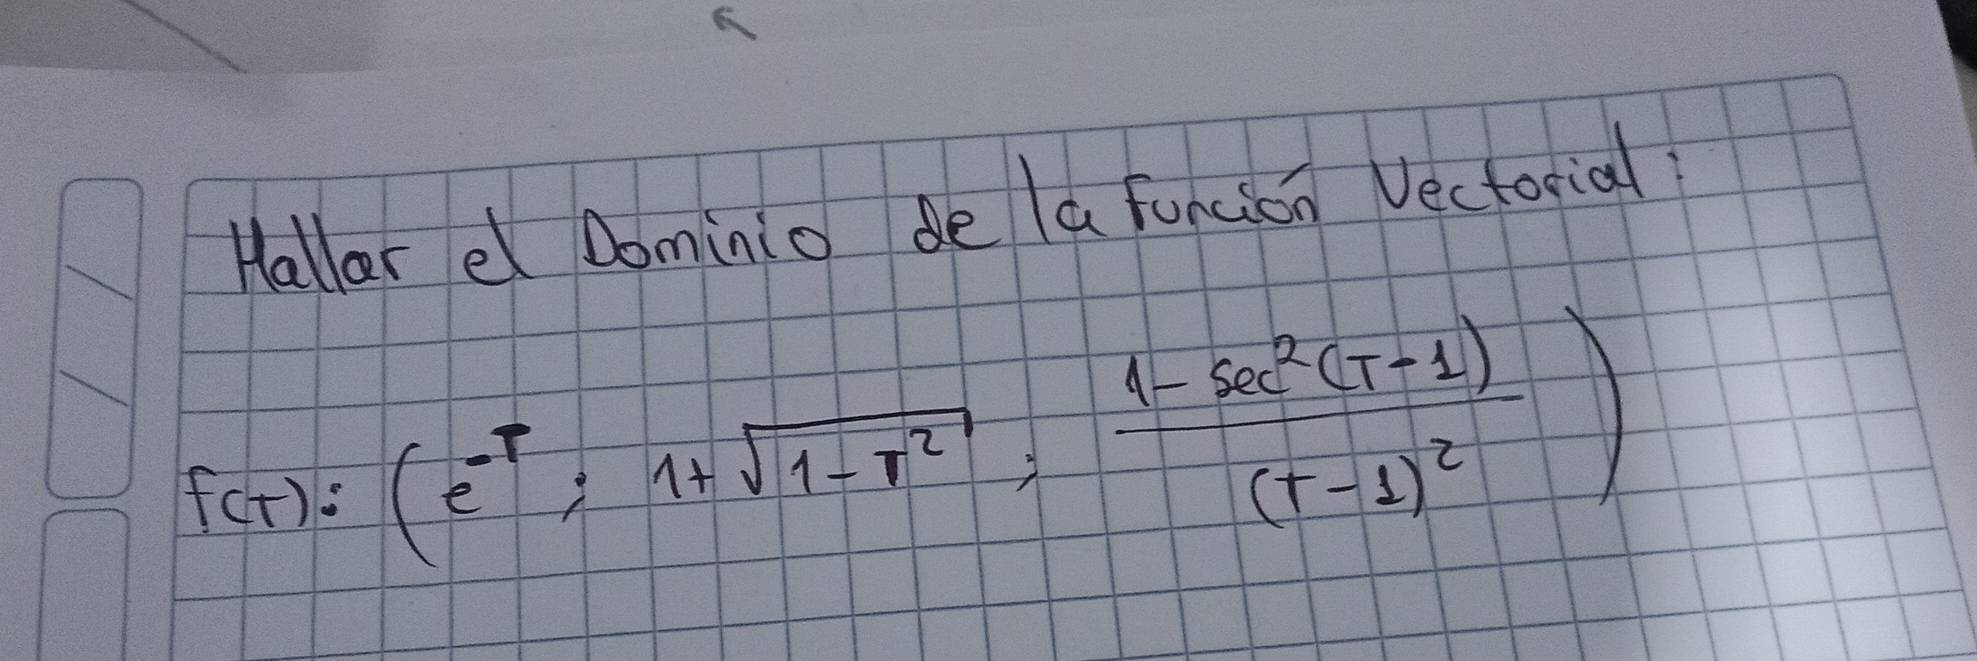 Hallar el Dominio de la función Vectorial:
f(T): (e^-T ; 1+√(1-T²) ; (1-sec²(T-1))/(T-1)²)